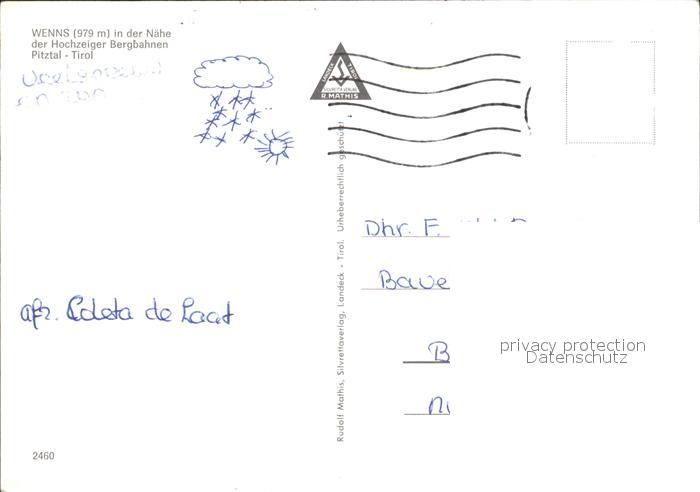 WENNS (979 m) in der Nähe
der Hochzeiger Bergbahnen
Pitztal - Tirol
LANDECK TIROL
SILVRETTA VERLAG
R. MATHIS
Rudolf Mathis, Silvrettaverlag, Landeck - Tirol. Urheberrechtlich geschützt
Dhr. F.
Bave
B
Ni
afz. de Laat
privacy protection
Datenschutz
2460